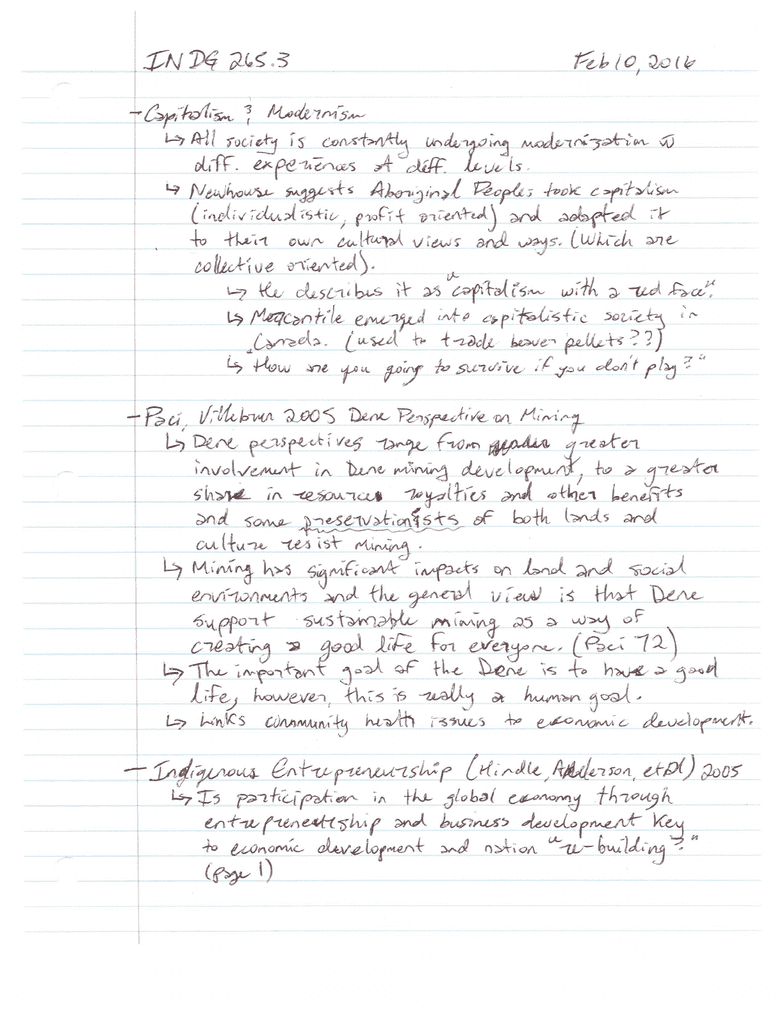 INDG 265.3 Feb 10, 2016
- Capitalism & Modernism
↳ All society is constantly undergoing modernization w
diff. experiences at diff. levels.
↳ Newhouse suggests Aboriginal Peoples took capitalism
(individualistic, profit oriented) and adapted it
to their own cultural views and ways. (Which are
collective oriented).
↳ He describes it as "capitalism with a red face".
↳ Mercantile emerged into capitalistic society in
Canada. (used to trade beaver pellets??)
↳ How are you going to survive if you don't play?"
- Paci, Villebrun 2005 Dene Perspective on Mining
↳ Dene perspectives range from greater
involvement in Dene mining development, to a greater
share in resources royalties and other benefits
and some preservationists of both lands and
culture resist mining.
↳ Mining has significant impacts on land and social
environments and the general view is that Dene
support sustainable mining as a way of
creating a good life for everyone. (Paci 72)
↳ The important goal of the Dene is to have a good
life, however, this is really a human goal.
↳ Links community health issues to economic development.
- Indigenous Entrepreneurship (Hindle, Anderson, et al) 2005
↳ Is participation in the global economy through
entrepreneurship and business development key
to economic development and nation "re-building?"
(page 1)